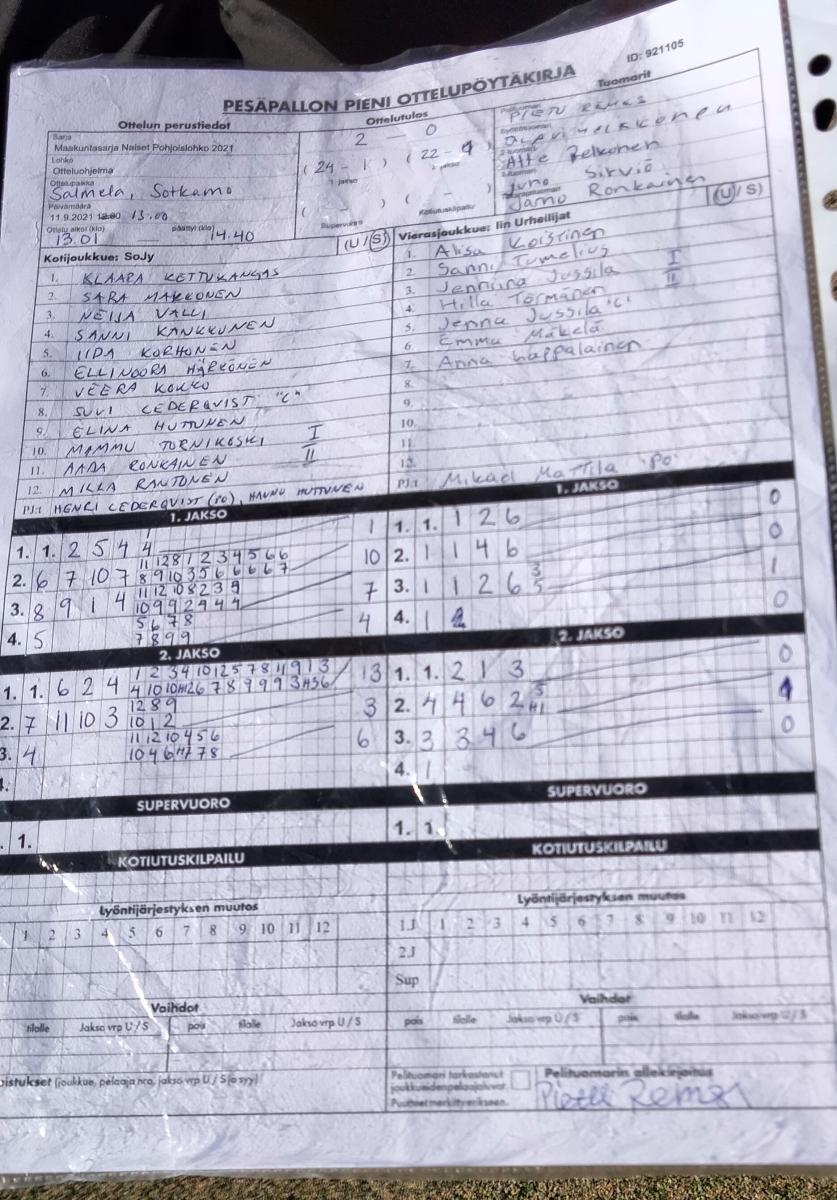 ID: 921105
PESÄPALLON PIENI OTTELUPÖYTÄKIRJA
Ottelun perustiedot
Ottelutulos
Tuomarit
Sarja
Maakuntasarja Naiset Pohjoislohko 2021
Lohko
Otteluohjelma
Ottelupaikka
Salmela, Sotkamo
Päivämäärä
11.9.2021 13.00
Ottelu alkoi (klo) päättyi (klo)
13.01 14.40
2 - 0
(24 - 1) (22 - 1)
1. jakso 2. jakso
( - ) ( - )
Supervuoro Kotiutuskilpailu
PIETU REMES
Atte Pelkonen
Juho Sirviö
Jarno Ronkainen
Kotijoukkue: SoJy (U/S)
1. KLAARA KETTUKANGAS
2. SARA MAKKONEN
3. NEIJA VALLI
4. SANNI KANKKUNEN
5. IIDA KORHONEN
6. ELLINOORA HÄRKÖNEN
7. VEERA KOKKO
8. SUVI CEDERQVIST "C"
9. ELINA HUTTUNEN
10. MIMMU TORNIKOSKI I
11. AADA RONKAINEN II
12. MILLA RANTONEN
PJ:t HENRI CEDERQVIST (PO), HANNU HUTTUNEN
Vierasjoukkue: Iin Urheilijat (U/S)
1. Alisa Koistinen
2. Sanni Tumelius
3. Jenniina Jussila I
4. Hilla Törmänen II
5. Jenna Jussila "C"
6. Emma Mäkelä
7. Anna Lappalainen
8.
9.
10.
11.
12.
PJ:t Mikael Mattila "PO"
1. JAKSO
1. 1. 2 5 4 4 1
2. 6 7 10 7 10
3. 8 9 1 4 7
4. 5 4
1. JAKSO
1. 1. 1 2 6 0
2. 1 1 4 6 0
3. 1 1 2 6 3 5 1
4. 1 2 0
2. JAKSO
1. 1. 6 2 4 13
2. 7 11 10 3 3
3. 4 6
2. JAKSO
1. 1. 2 1 3 0
2. 4 4 6 2 1
3. 3 3 4 6 0
4. 1
SUPERVUORO
1.
SUPERVUORO
1. 1.
KOTIUTUSKILPAILU
KOTIUTUSKILPAILU
Lyöntijärjestyksen muutos
1 2 3 4 5 6 7 8 9 10 11 12
Lyöntijärjestyksen muutos
1J 1 2 3 4 5 6 7 8 9 10 11 12
2J
Sup
Vaihdot
tilalle Jakso vrp U / S pois tilalle Jakso vrp U / S
Vaihdot
pois tilalle Jakso vrp U / S pois tilalle Jakso vrp U / S
(joukkue, pelaaja nro, jakso vrp U / S ja syy)
Pelituomari tarkastanut
joukkueiden pelaajaluvat.
Puutteet merkitty erikseen.
Pelituomarin allekirjoitus
Pietu Remes